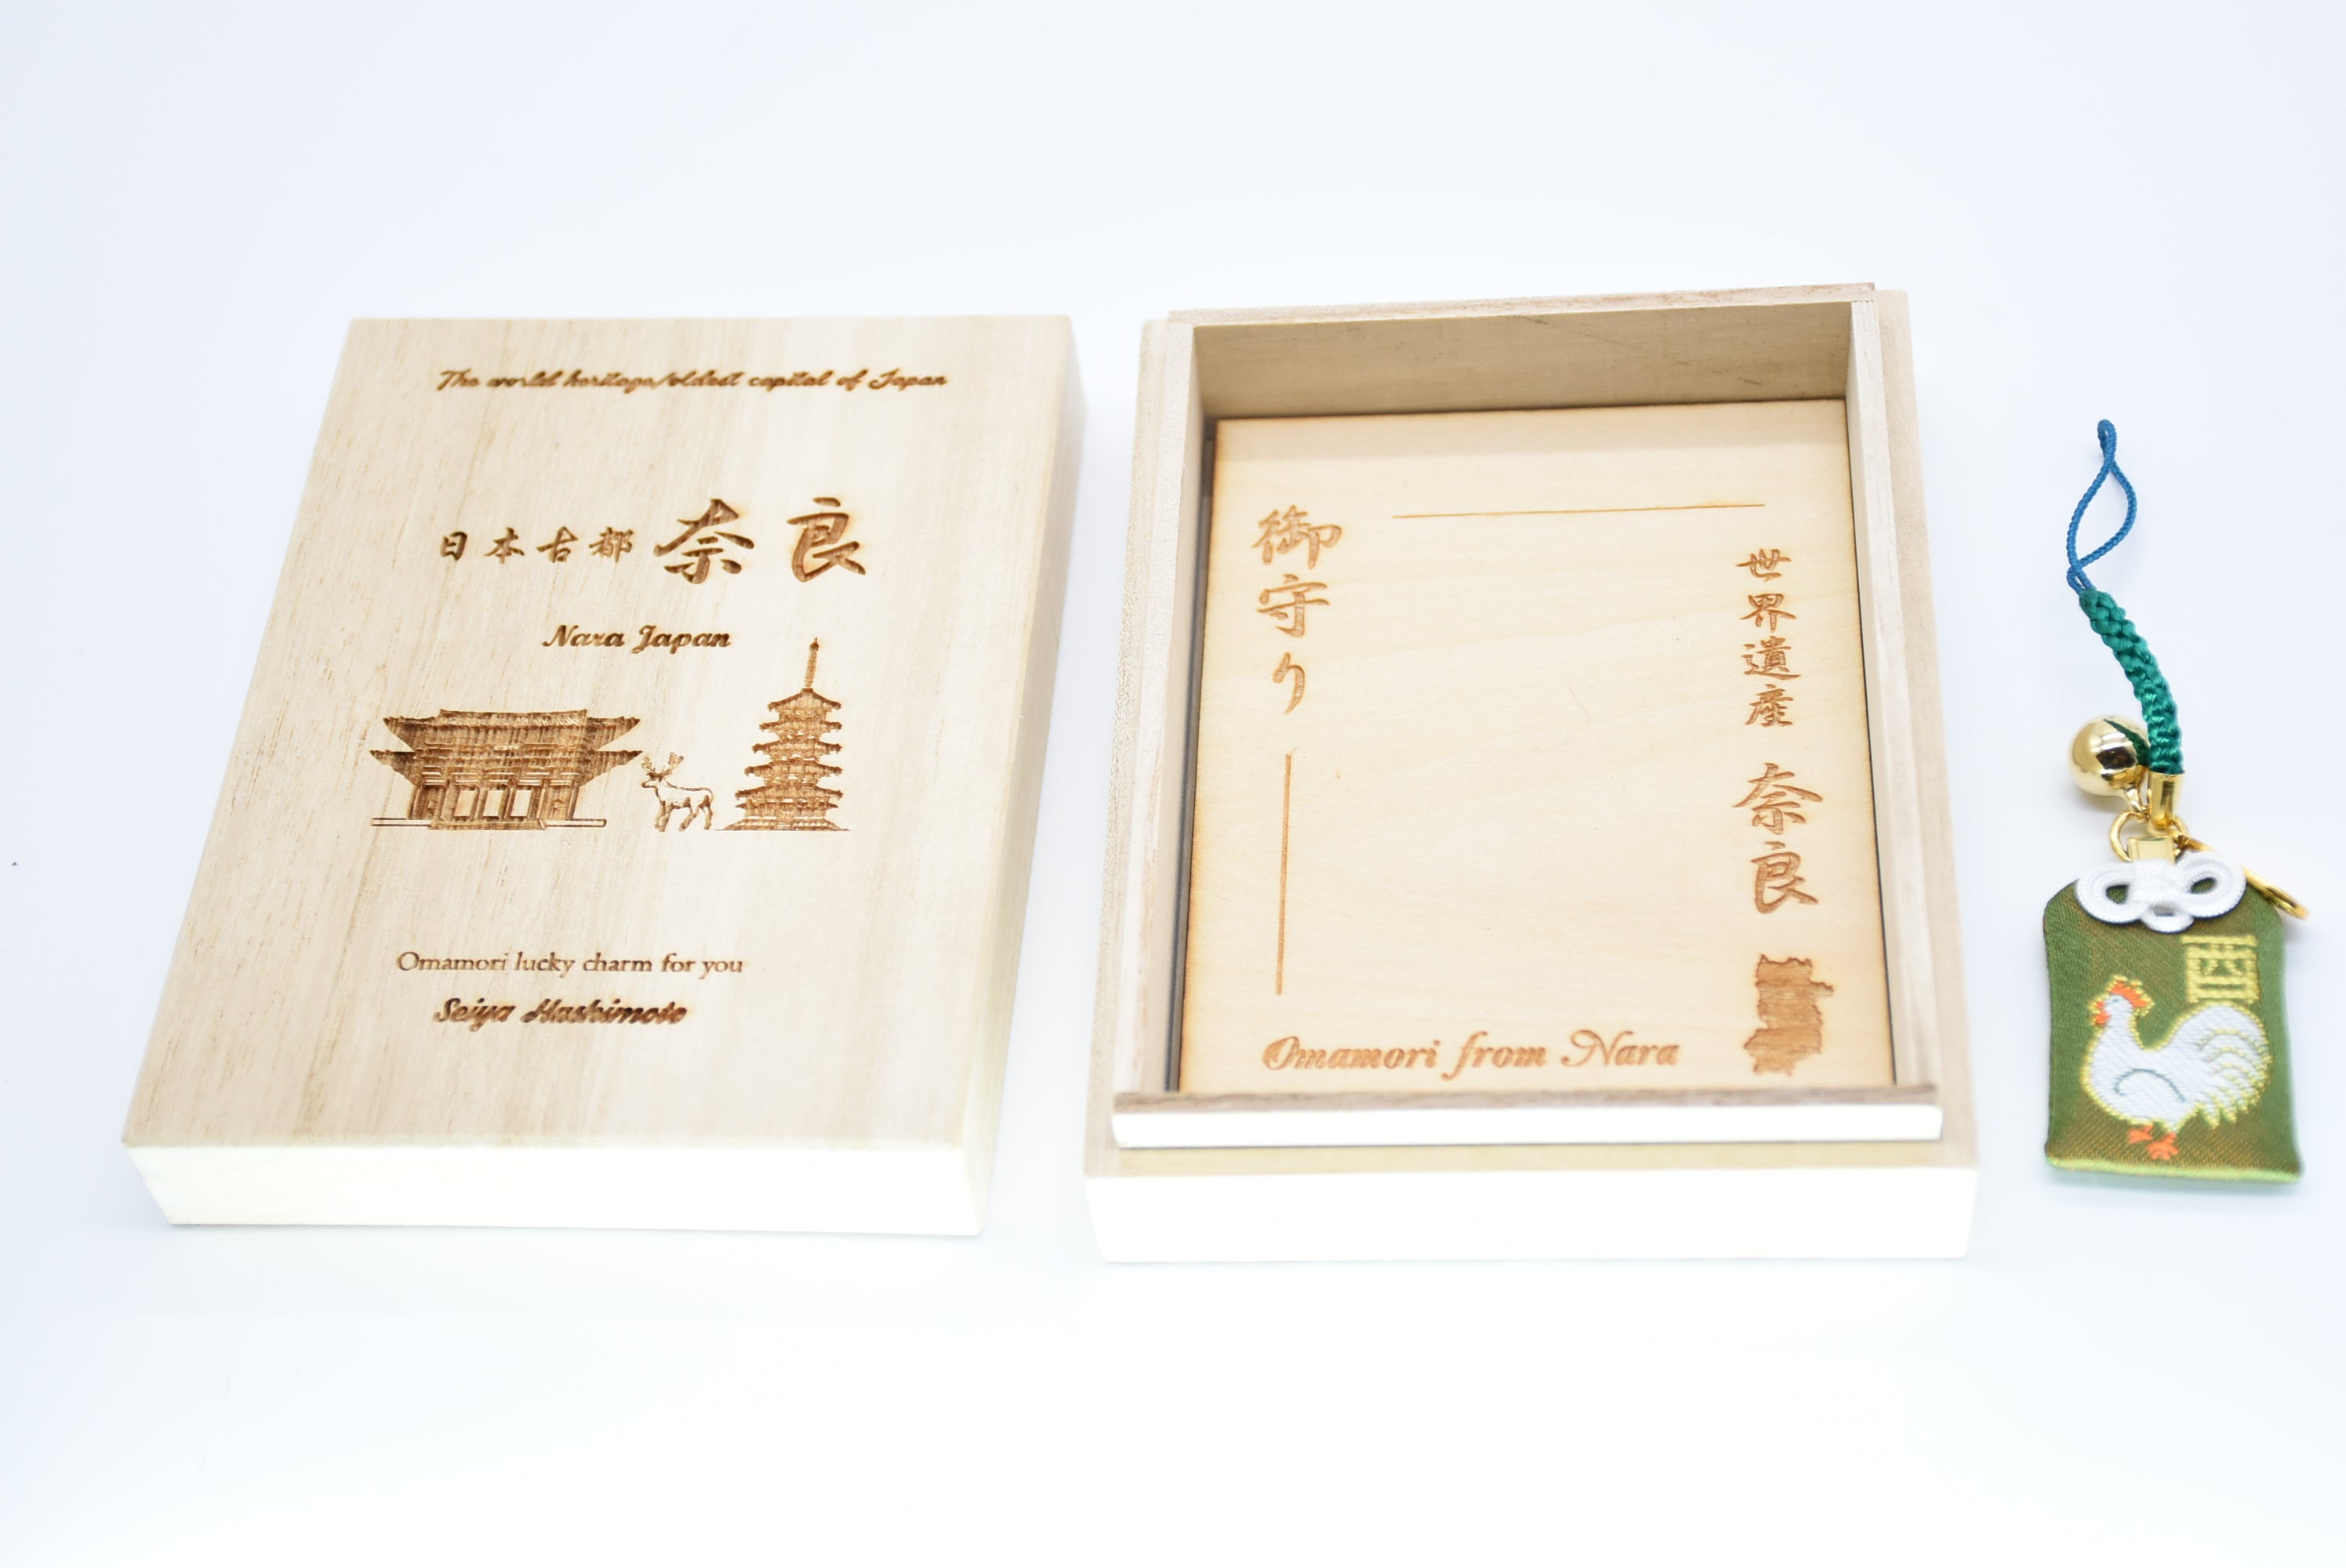 The world heritage/oldest capital of Japan
日本古都 奈良
Nara Japan
Omamori lucky charm for you
Seiya Hashimoto
世界遺産 奈良
御守り
Omamori from Nara
酉